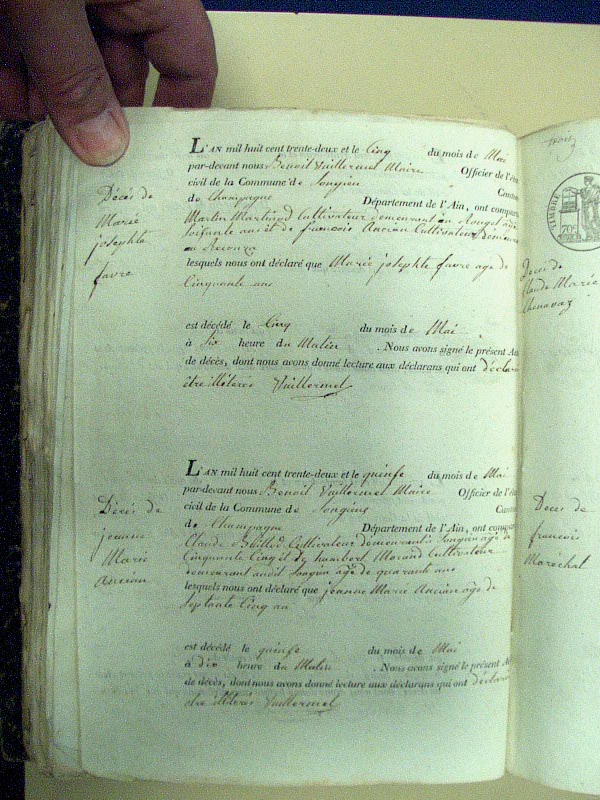 Décès de
Marie
josephte
favre
L'AN mil huit cent trente-deux et le Cinq du mois de Mai
par-devant nous Benoit Vuillermet Maire Officier de l'éta
civil de la Commune de Songieu Canton
de Champagne Département de l'Ain, ont compar
Martin Martinod Cultivateur demeurant au âgé
soixante ans et de francois Ancian Cultivateur demeura
au
lesquels nous ont déclaré que Marie josephte favre age de
Cinquante ans
est décédé le Cinq du mois de Mai
à Six heure du Matin . Nous avons signé le présent Ac
de décès, dont nous avons donné lecture aux déclarans qui ont déclaré
être illéterés Vuillermet
Décès de
jeanne
Marie
Ancian
L'AN mil huit cent trente-deux et le quinse du mois de Mai
par-devant nous Benoit Vuillermet Maire Officier de l'éta
civil de la Commune de Songieu Canton
de Champagne Département de l'Ain, ont compar
Claude Cultivateur demeurant à Songieu age de
Cinquante Cinq et dhumbert Morand Cultivateur
demeurant audit Songieu âgé de quarante ans
lesquels nous ont déclaré que jeanne Marie Ancian âgé de
Septante Cinq an
est décédé le quinse du mois de Mai
à dix heure du Matin . Nous avons signé le présent Ac
de décès, dont nous avons donné lecture aux déclarans qui ont déclaré
être illéterés Vuillermet
TIMBRE
70
Décès de
Claude Marie
Chenavaz
Décès de
francois
Maréchal